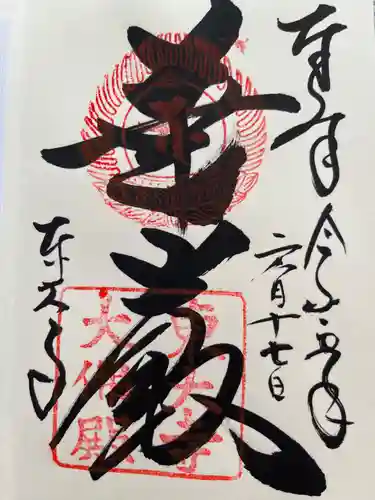 奉拝
令和五年
六月十七日
華厳
東大寺
大佛殿
東大寺